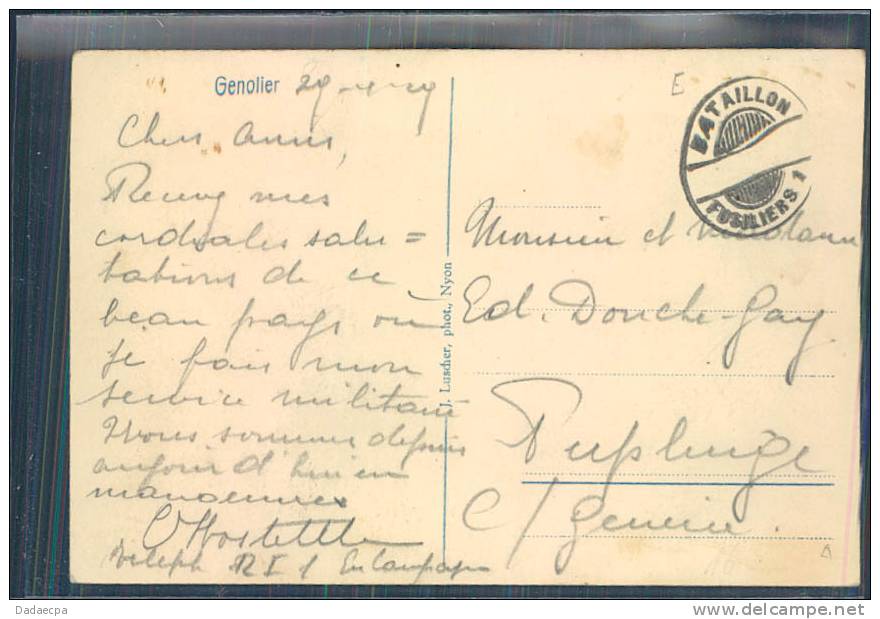 Genolier
Chers amis,
Recevez mes
cordiales salu =
tations de ce
beau pays où
je fais mon
service militaire
Nous sommes depuis
aujourd'hui en
manoeuvres
RI 1 En campagne
E
BATAILLON
FUSILIERS 1
Monsieur et Madame
Ed. Douche-Gay
Puplinge
c/ Genève.
J. Luscher, phot., Nyon
Dadaecpa
delcampe.net